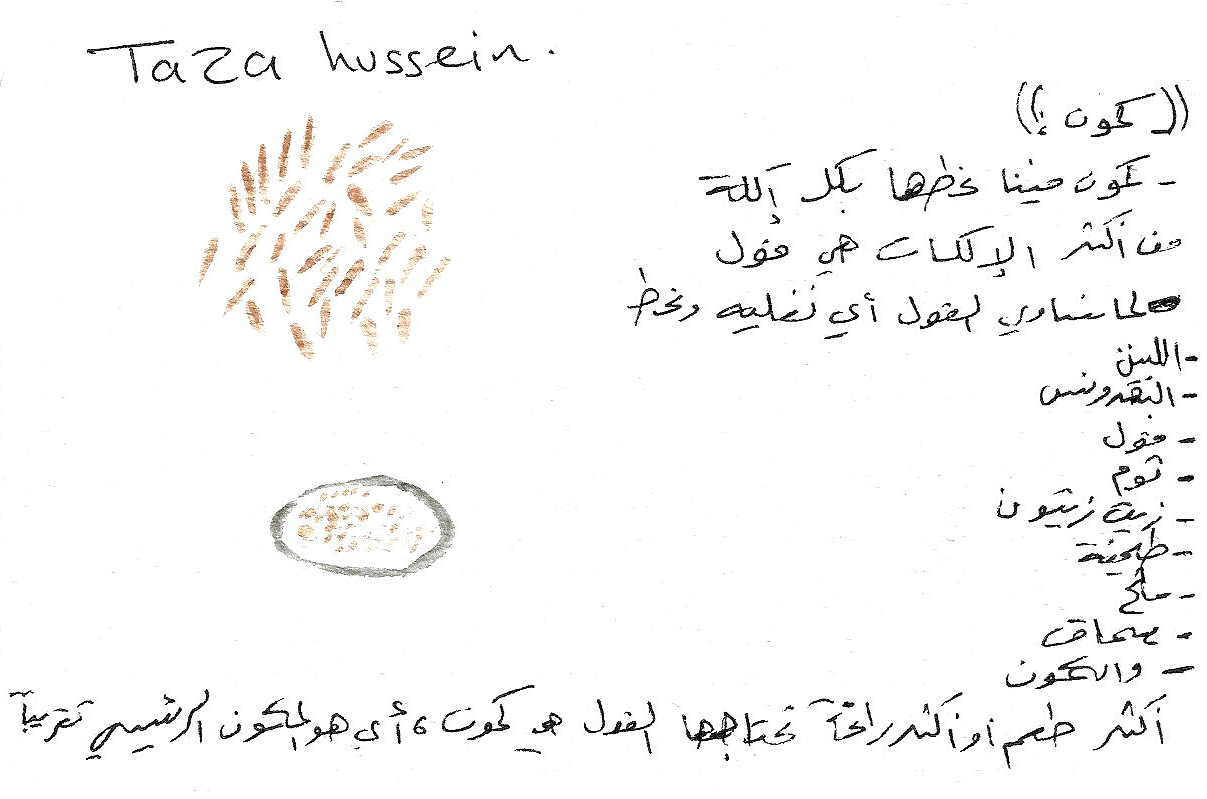 Taza hussein.
((كمون:))
- كمون فينا نحطها بكل إكلة
من أكثر الإكلات هي فول
لما نساوي الفول أي نغليه ونحط
- اللبن
- البقدونس
- فول
- ثوم
- زيت زيتون
- طحينة
- ملح
- سماق
- والكمون
أكثر طعم او أكثر رائحة نحتاجها الفول هو كمون، أي هو المكون الرئيسي تقريباً